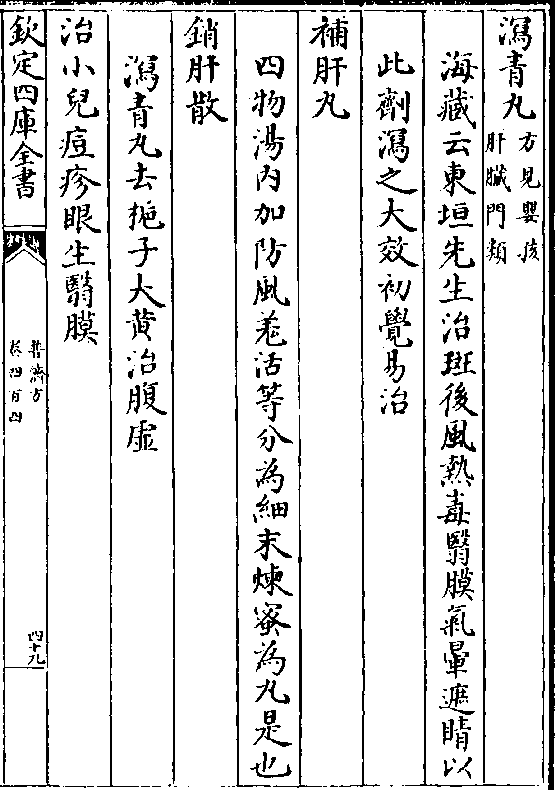 瀉青丸方見嬰孩肝臟門類
海藏云東垣先生治斑後風熱毒翳膜氣暈遮睛以
此劑瀉之大效初覺易治
補肝丸
四物湯内加防風羌活等分為細末煉蜜為丸是也
銷肝散
瀉青丸去梔子大黄治腹虚
治小兒痘疹眼生翳膜
欽定四庫全書
普濟方
卷四百四
四十九